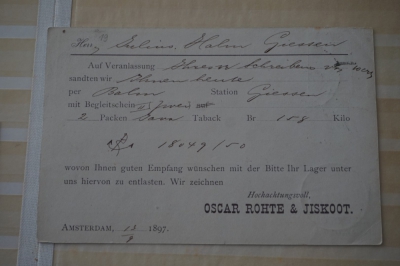 Herrn Julius Halm Giessen
Auf Veranlassung Ihres Schreibens
sandten wir Ihnen heute
per Bahn Station Giessen
mit Begleitschein I zwei
2 Packen Java Taback Br 158 Kilo
18049/50
wovon Ihnen guten Empfang wünschen mit der Bitte Ihr Lager unter
uns hiervon zu entlasten. Wir zeichnen
Hochachtungsvoll,
OSCAR ROHTE & JISKOOT.
AMSTERDAM, 13/9 1897.